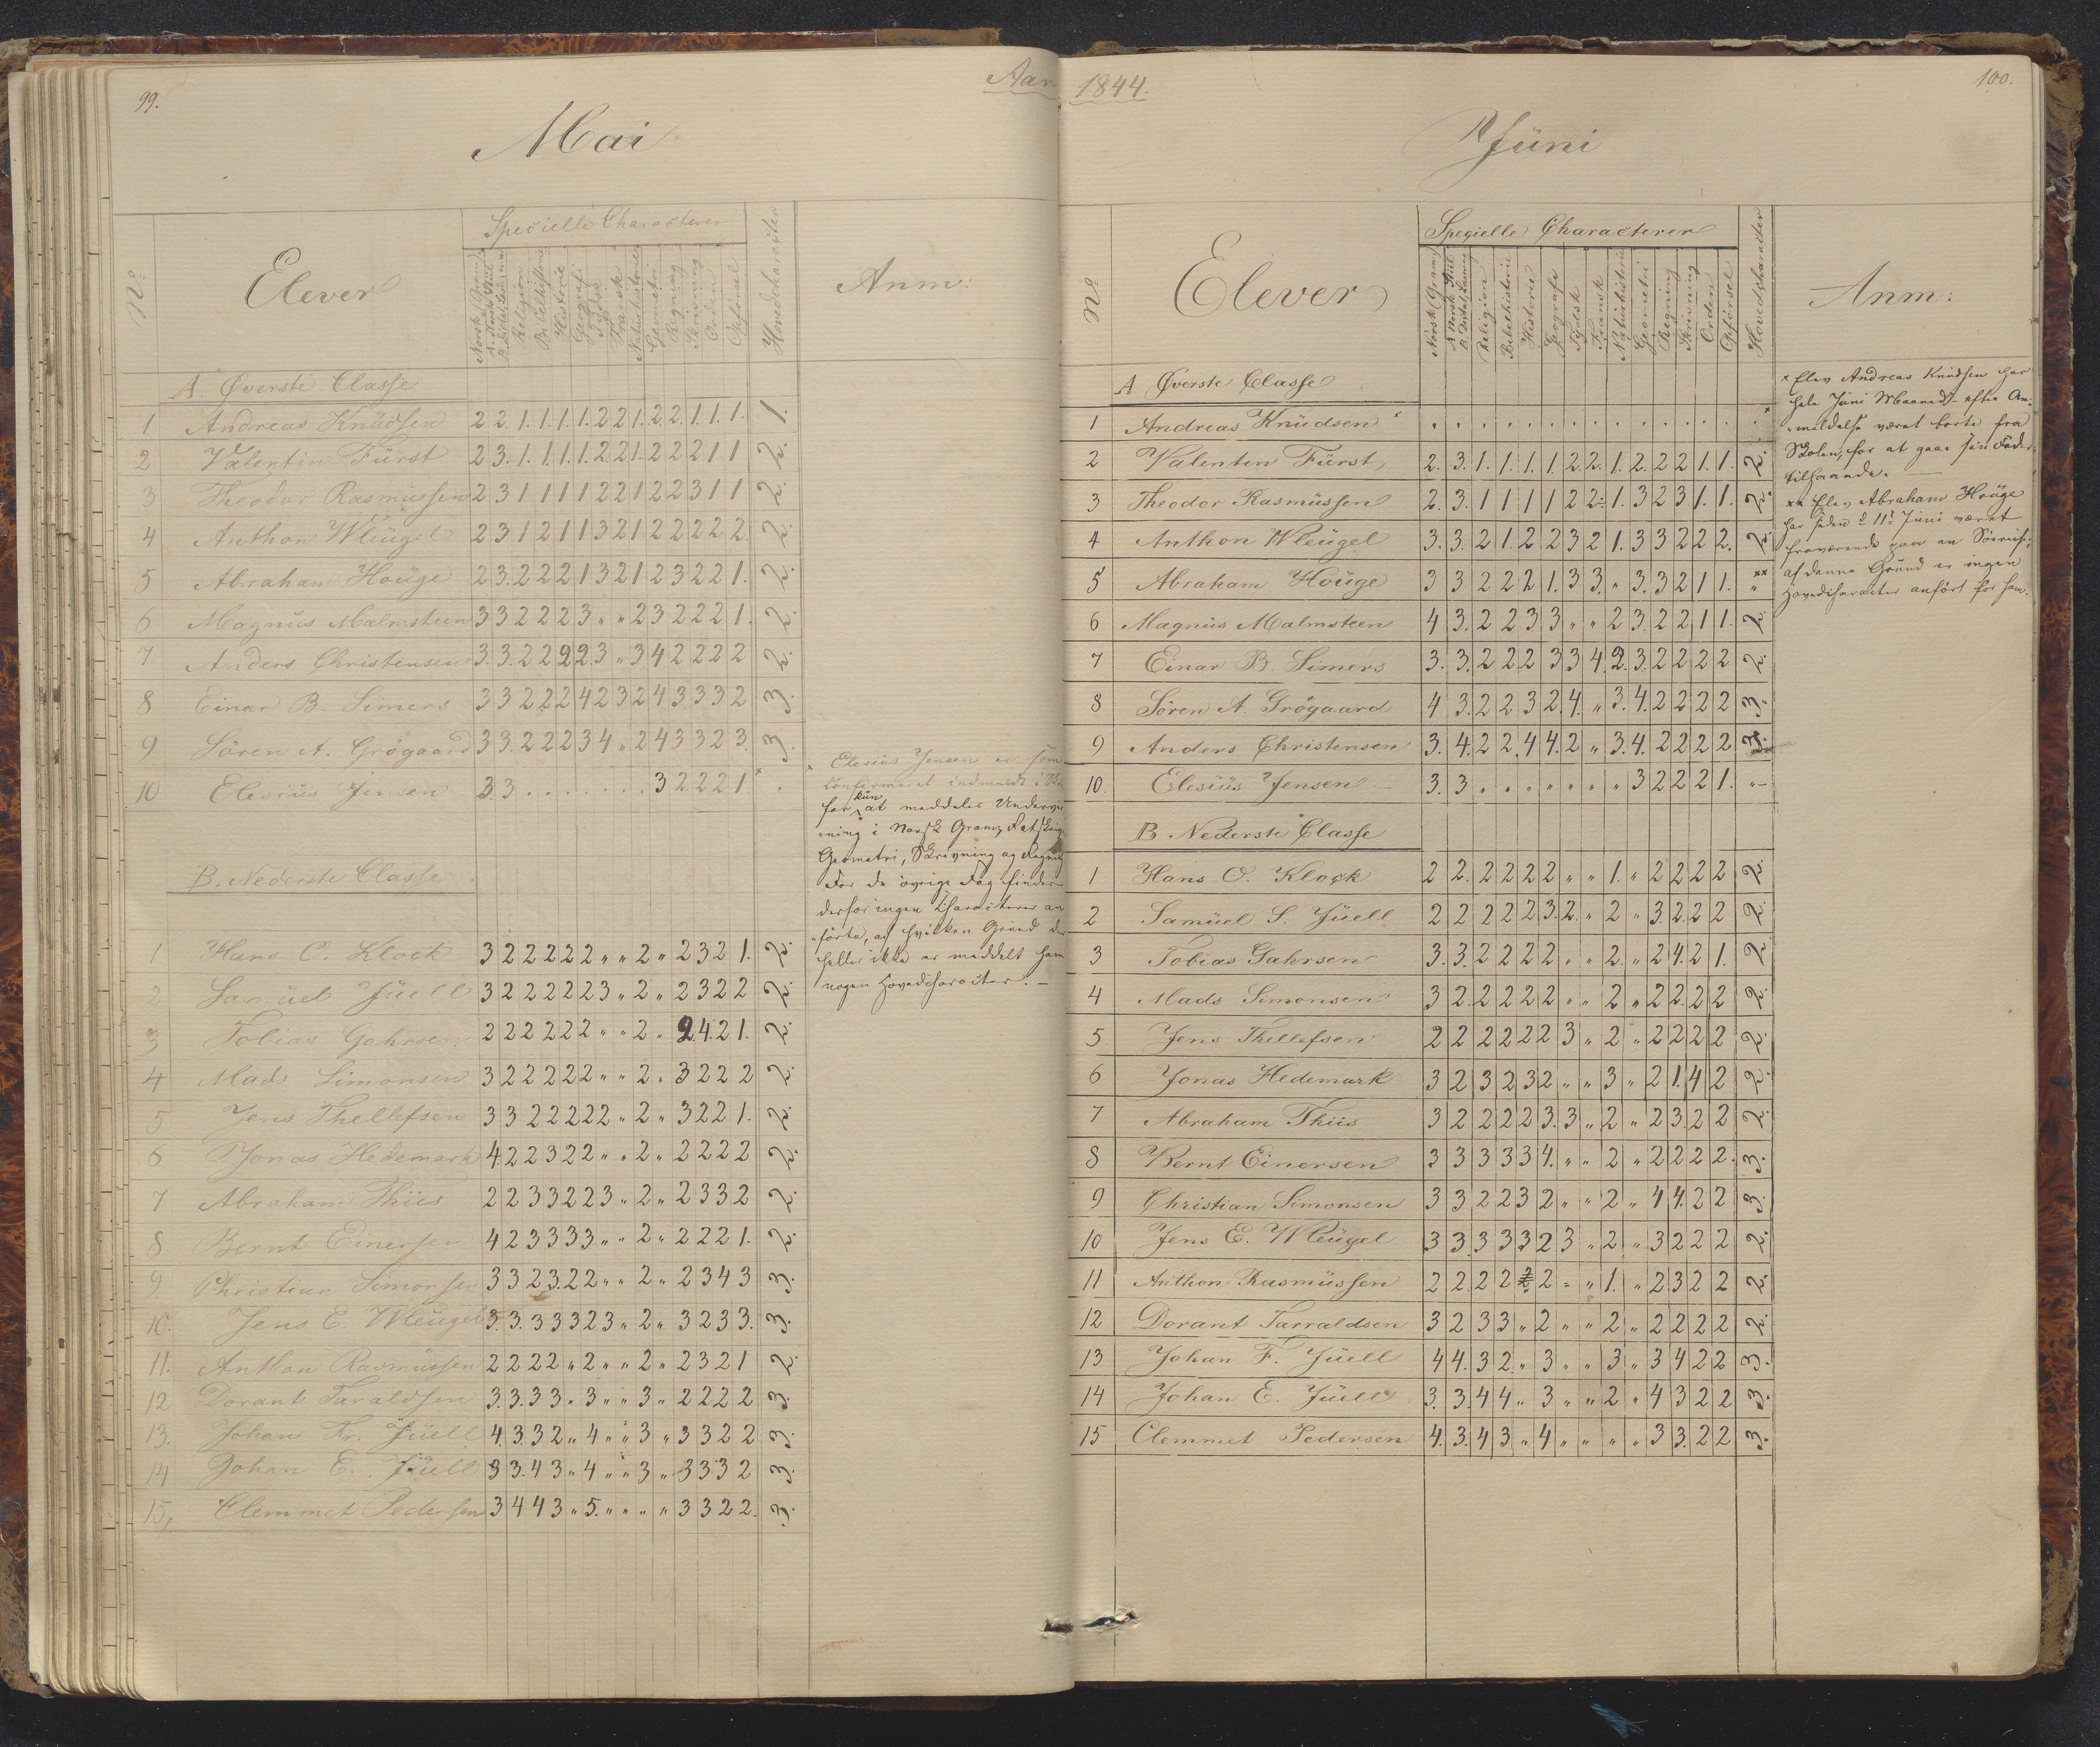 99.
Aar
Mai
No
Elever
Specielle Characterer
Hovedcharacter
Anm:
Norsk Gram.
Religion
Bibelhistorie
Historie
Geografi
Tydsk
Fransk
Naturhistorie
Geometri
Regning
Skrivning
Orden
Opførsel
A. Øverste Classe
1 Andreas Knüdsen 2 2. 1. 1. 1. 1. 2 2 1. 2 2. 1. 1. 1. 1.
2 Valentin Fürst 2 3. 1. 1. 1. 1. 2. 2 1. 2 2 2 1 1 2.
3 Theodor Rasmüssen 2 3 1 1 1 1 2 2 1 2 2 3 1 1 2.
4 Anthon Wleügel 2 3 1 2 1 1 3 2 1 2 2 2 2 2. 2.
5 Abraham Hoüge 2 3. 2 2 2 1 3 2 1 2 3 2 2 1. 2.
6 Magnüs Malmsteen 3 3 2 2 2 3 " " 2 3 2 2 2 1. 2.
7 Anders Christensen 3. 3. 2 2 2 2. 3 " 3 4 2 2 2 2 2.
8 Einar B. Simers 3 3 2 2 2 4 2 3 2 4 3 3 3 2 3.
9 Sören A. Grögaard 3 3. 2 2 2 3 4 " 2 4 3 3 2 3. 3.
10 Elesiüs Jensen 3. 3 . . . . . . . 3 2. 2 2 1 × .
× Elesius Jensen er som
Confirmeret indmeldt i
for kün at meddeles Underviis
ning i Norsk Gram, Retskrivn
Geometri, Skrivning og Regning
For de øvrige Fag findes
derfor ingen Characterer an
førte, af hvilken Grund der
heller ikke er meddelt ham
nogen Hovedcharacter. –
B. Nederste Classe
1 Hans O. Klock 3 2 2 2 2 2 " " 2 " 2 3 2 1. 2.
2 Samüel Jüell 3 2 2 2 2 2 3 " 2 " 2 3 2 2 2.
3 Tobias Gahrsen 2 2 2 2 2 2 " " 2 " 2 4. 2 1. 2.
4 Mads Simonsen 3 2 2 2 2 2 " " 2 " 3 2 2 2 2.
5 Jens Thellefsen 3 3 2 2 2 2 2 " 2 " 3 2 2 1. 2.
6 Jonas Hedemark 4 2 2 3 2 2 " " 2 " 2 2 2 2 2.
7 Abraham Thiis 2 2 3 3 2 2 3 " 2 " 2 3 3 2 2.
8 Bernt Einersen 4 2 3 3 3 3 " " 2 " 2 2 2 1. 2.
9 Christian Simonsen 3 3 2 3. 2 2 " " 2 " 2 3 4 3 3.
10. Jens E. Wleügel 3. 3. 3 3 3 2 3 " 2 " 3 2 3 3. 3.
11. Anthon Rasmüssen 2 2 2 2 " 2 " " 2 " 2 3 2 1 2.
12 Dorant Taraldsen 3. 3. 3 3 " 3 " " 3 " 2 2 2 2 3.
13. Johan Fr. Jüell 4. 3. 3 2 " 4 " " 3 " 3 3 2 2 3.
14 Johan E. Jüell 3 3. 4 3 " 4 " " 3 " 3 3 3 2 3.
15, Clemmet Pedersen 3 4 4 3 " 5. " " " " 3 3 2 2. 3.
1844.
100.
Jüni
No
Elever
Specielle Characterer
Hovedcharacter
Anm:
Norsk Gram.
A. Norsk Stiil
B. Indenadlæsning
Religion
Bibelhistorie
Historie
Geografi
Tydsk
Fransk
Natürhistorie
Geometri
Regning
Skrivning
Orden
Opførsel
A Øverste Classe
1 Andreas Knüdsen × . . . . . . . . . . . . . . ×
2 Valentin Fürst 2. 3. 1. 1. 1. 1. 2 2. 1. 2. 2 2 1. 1. 2.
3 Theodor Rasmüssen 2. 3. 1 1 1 1 2 2 1. 3 2 3 1. 1. 2.
4 Anthon Wleügel 3. 3. 2 1. 2 2 3 2 1. 3 3 2 2 2. 2.
5 Abraham Hoüge 3 3 2 2 2 1. 3 3. " 3. 3 2 1 1. ×× "
6 Magnüs Malmsteen 4 3. 2 2 3 3 " " 2 3. 2 2 1 1. 2.
7 Einar B Simers 3. 3. 2 2 2 3 3 4. 2. 3. 2 2 2 2 2.
8 Sören A. Grögaard 4 3. 2 2 3 2. 4. " 3. 4. 2 2 2 2 3.
9 Anders Christensen 3. 4. 2 2. 4 4. 2 " 3. 4. 2 2 2 2 3.
10. Elesiüs Jensen – 3. 3 " " " " " " " 3 2 2 2 1. "–
× Elev Andreas Knüdsen har
hele Jüni Maaned efter An-
meldelse været borte fra
Skolen, for at gaae sin Fader
tilhaande.
×× Elev Abraham Hoüge
har siden d 11te Juni været
fraværende paa en Søreise;
af denne Grund er ingen
Hovedcharacter anført for ham.
B. Nederste Classe
1 Hans O. Klock 2 2. 2 2 2 2 " " 1. " 2 2 2 2 2.
2 Samüel S. Jüell 2 2 2 2 2 3. 2. " 2 " 3. 2. 2 2 2.
3 Tobias Gahrsen 3. 3. 2 2 2 2 " " 2. " 2 4. 2 1. 2.
4 Mads Simonsen 3 2. 2 2 2 2 " " 2 " 2 2. 2 2 2.
5 Jens Thellefsen 2 2 2 2 2 2 3 " 2 " 2 2 2 2 2.
6 Jonas Hedemark 3 2 3 2 3 2 " " 3 " 2 1. 4 2 2.
7 Abraham Thiis 3 2 2 2 2 3. 3 " 2 " 2 3. 2 2 2.
8 Bernt Einersen 3 3 3 3 3 4. " " 2 " 2 2 2 2. 3.
9 Christian Simonsen 3 3 2 2 3 2 " " 2 " 4 4. 2 2 3.
10 Jens E. Wleügel 3 3. 3 3 3 2 3 " 2 " 3 2 2 2 2.
11 Anthon Rasmüssen 2 2. 2 2 2 " " 1. " 2 3 2 2 2.
12 Dorant Tarraldsen 3 2 3 3 " 2 " " 2 " 2 2 2 2 2.
13 Johan F. Jüell 4 4. 3 2. " 3 " " 3 " 3 4 2 2 3.
14 Johan E. Jüell 3. 3. 4 4 " 3 " " 2 " 4 3 2 2 3.
15 Clemmet Pedersen 4. 3. 4 3 " 4 " " " " 3 3. 2 2 3.